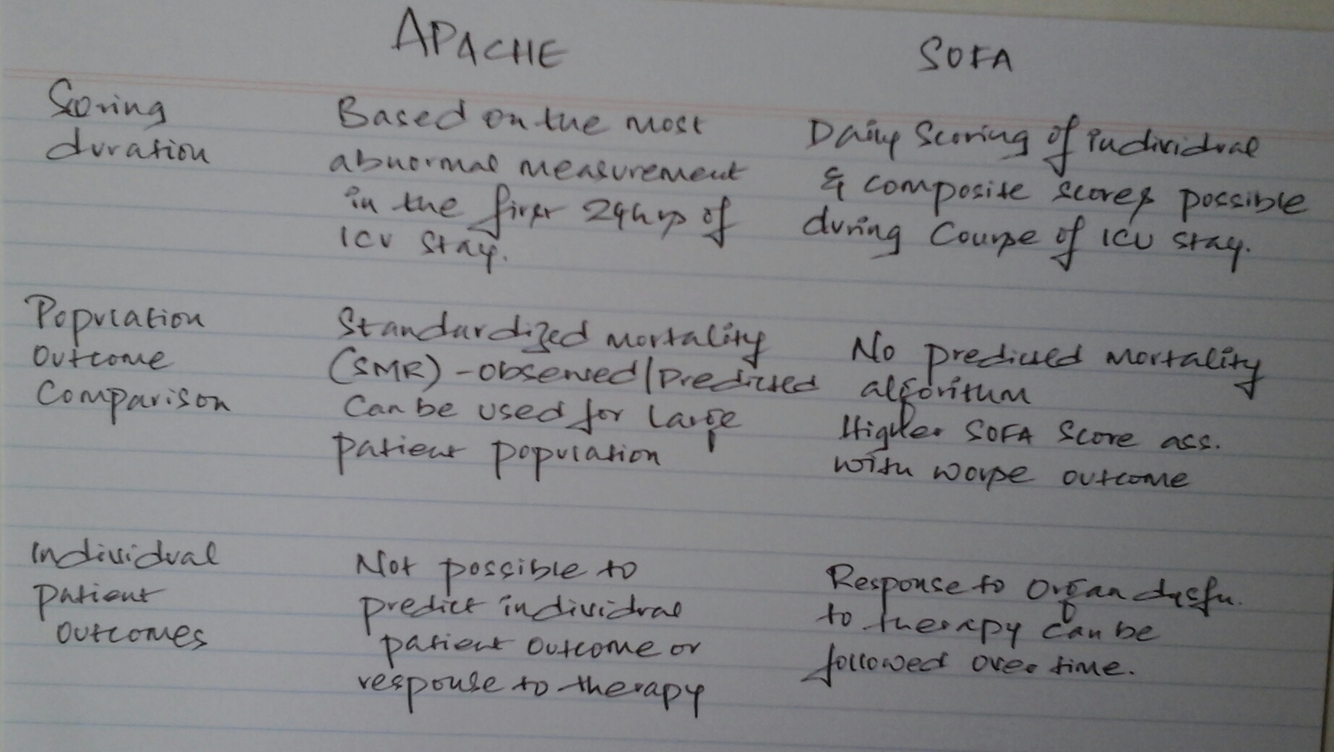 APACHE SOFA
Scoring
duration
Based on the most
abnormal measurement
in the first 24hrs of
ICU stay.
Daily Scoring of individual
& composite scores possible
during Course of ICU stay.
Population
Outcome
Comparison
Standardized mortality
(SMR) - observed/predicted
Can be used for large
patient population
No predicted mortality
algorithm
Higher SOFA Score ass.
with worse outcome
Individual
patient
outcomes
Not possible to
predict individual
patient outcome or
response to therapy
Response to Organ dysfn.
to therapy can be
followed over time.